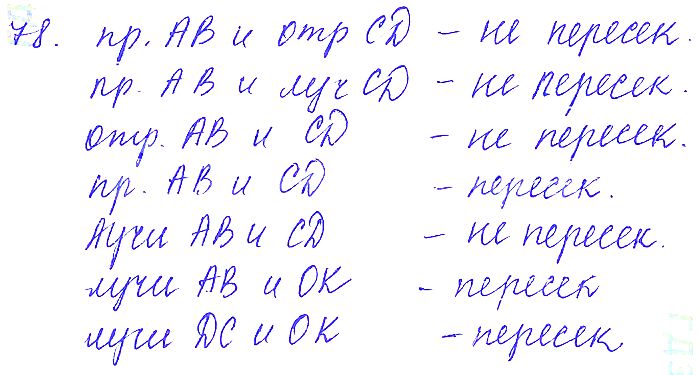 78. пр. AB и отр CD – не пересек.
пр. AB и луч CD – не пересек.
отр. AB и CD – не пересек.
пр. AB и CD – пересек.
Лучи AB и CD – не пересек.
лучи AB и OK – пересек
лучи DC и OK – пересек
ГДЗ